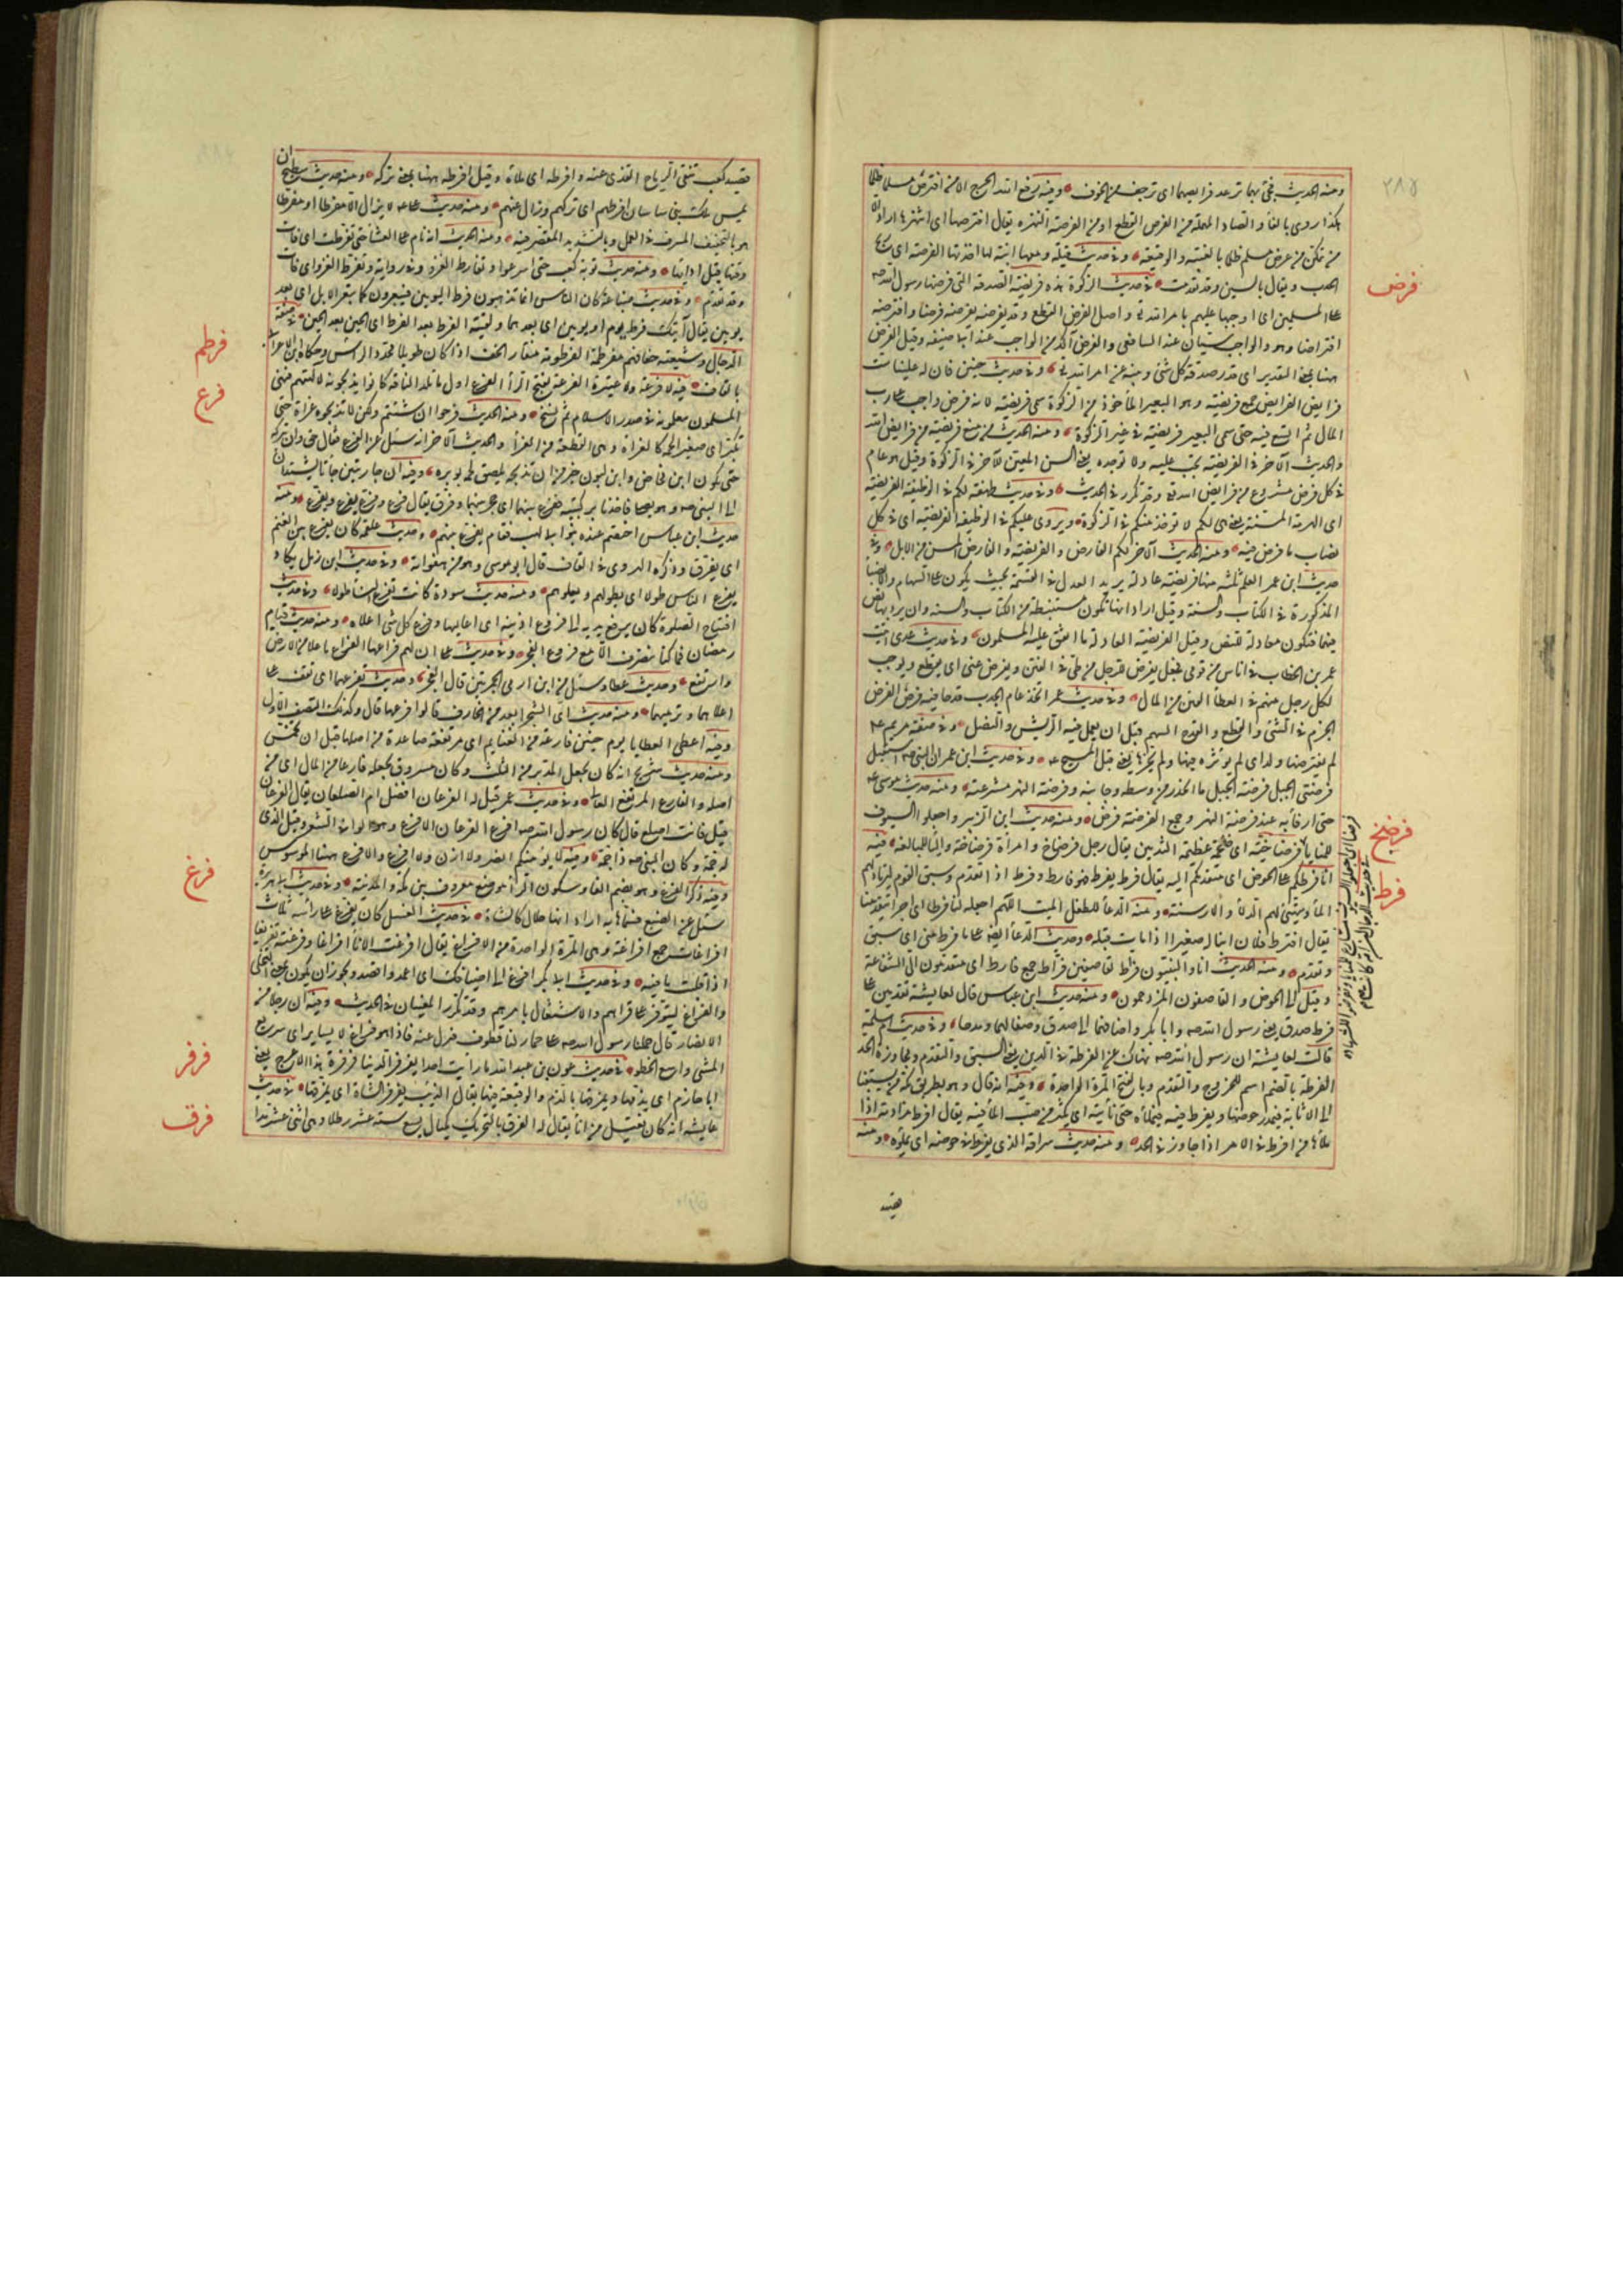 ٢٨٧
ومنه الحديث فجئ بهما ترعد فرايصهما اى ترجف من الخوف وفيه رفع الله الحرج الا من افترض مسلما ظلما
هكذا روى بالفاء والصاد المهملة من الفرص القطع او من الفرصة النهزة يقال افترصها اى انتهزها اراد الا
من تمكن من عرض مسلم ظلما بالغيبة والوقيعة وفى حديث قيلة ومعها ابنة لها اخذتها الفرصة اى ريح
الحدب ويقال بالسين وقد تقدمت فى حديث الزكوة هذه فريضة الصدقة التى فرضها رسول الله صه
فرض
على المسلمين اى اوجبها عليهم بامر الله تع واصل الفرض القطع وقد يفرضه يفرضه فرضا وافترضه
افتراضا وهو والواجب سيان عند الشافعى والفرض آكد من الواجب عند ابيحنيفة وقيل الفرض
ههنا بمعنى التقدير اى قدر صدقة كل شئ وبينه عن امر الله تع وفى حديث حنين فان له علينا ست
فرايض الفرايض جمع فريضة وهو البعير المأخوذ من الزكوة سمى فريضة لانه فرض واجب على رب
المال ثم اتسع فيه حتى سمى البعير فريضة فى غير الزكوة ومنه الحديث من منع فريضة من فرايض الله
والحديث الآخر فى الفريضة تجب عليه ولا توجد يعنى السن المعين للآخر فى الزكوة وقيل هو عام
فى كل فرض مشروع من فرايض الله تع وقد تكرر فى الحديث وفى حديث طهفة لكم فى الوظيفة الفريضة
اى الهرمة المسنة يعنى هى لكم لا تؤخذ منكم فى الزكوة ويروى عليكم فى الوظيفة الفريضة اى فى كل
نصاب ما فرض فيه ومنه الحديث الآخر لكم الفارض والفريضة والفارض المسن من الابل وفى
حديث ابن عمر العلم ثلثة منها فريضة عادلة يريد العدل فى القسمة بحيث يكون على السهام والانصبا
المذكورة فى الكتاب والسنة وقيل اراد انها تكون مستنبطة من الكتاب والسنة وان لم يرد بها نص
فيهما فتكون معادلة للنص وقيل الفريضة العادلة ما اتفق عليه المسلمون وفى حديث عدى اتيت
عمر بن الخطاب فى اناس من قومى فجعل يفرض للرجل من طى فى الفين ويعرض عنى اى يقطع ويوجب
لكل رجل منهم فى العطأ الفين من المال وفى حديث عمر اتخذ عام الجدب قدحا فيه فرض الفرض
الحزم فى الشئ والقطع والقدح السهم قبل ان يعمل فيه الريش والنصل وفى صفة مريم ع
لم يفترضها ولد اى لم يؤثر فيها ولم يحزها يعنى قبل المسيح ع وفى حديث ابن عمر ان النبى صه استقبل
فرضتى الجبل فرضة الجبل ما انحدر من وسطه وجانبه وفرضة النهر مشرعته ومنه حديث موسى ع
حتى ارفأ به عند فرضة النهر وجمع الفرضة فرض ومنه حديث ابن الزبير واجعلوا السيوف
فرضخ
للمنايا فرضاخية اى ضخمة عظيمة الثديين يقال رجل فرضاخ وامرأة فرضاخة والياء للمبالغة فيه
فرط
انا فرطكم على الحوض اى متقدمكم اليه يقال فرط يفرط فهو فارط وفرط اذا تقدم وسبق القوم ليرتاد لهم
الماء ويهيئ لهم الدلأ والارسنة ومنه الدعأ للطفل الميت اللهم اجعله لنا فرطا اى اجرا يتقدمنا
يقال افترط فلان ابنا له صغيرا اذا مات قبله وحديث الدعأ ايضا على ما فرط منى اى سبق
وتقدم ومنه الحديث انا والنبيون فراط لقاصفين فراط جمع فارط اى متقدمون الى الشفاعة
وقيل الى الحوض والقاصفون المزدحمون ومنه حديث ابن عباس قال لعايشة تقدمين على
فرط صدق يعنى رسول الله صه وابا بكر واضافهما الى صدق وصفا لهما ومدحا وفى حديث ام سلمة
قالت لعايشة ان رسول الله صه نهاك عن الفرطة فى الدين يعنى السبق والتقدم ومجاوزة الحد
الفرطة بالضم اسم للخروج والتقدم وبالفتح المرة الواحدة وفيه انه قال وهو بطريق مكة من يسبقنا
الى الاثاية فيمدر حوضها ويفرط فيه فيملأه حتى نأتيه اى يكثر من صب المأ فيه يقال افرط مزادته اذا
ملأها من افرط فى الامر اذا جاوز فى الحد ومنه حديث سراقة الذى يفرط فى حوضه اى يملؤه ومنه
قصيد كعب تنفى الرياح القذى عنه وافرطه اى ملأه وقيل افرطه ههنا بمعنى تركه ومنه حديث سطيح ان
يمس ملك بنى ساسان افرطهم اى تركهم وزال عنهم ومنه حديث على ع لا يزال الا مفرطا او مفرطا
هو بالتخفيف المسرف فى العمل وبالتشديد المقصر فيه ومنه الحديث انه نام عن العشأ حتى تفرطت اى فات
وقتها قبل ادايها ومنه حديث توبة كعب حتى اسرعوا وتفارط الغزو وفى رواية وتفرط الغزو اى فات
وقد تقدم وفى حديث ضباعة كان الناس انما تذهبون فرط اليومين فيبعرون كما تبعر الابل اى بعد
يومين يقال آتيك فرط يوم او يومين اى بعدهما ولقيته الفرط بعد الفرط اى الحين بعد الحين فى صفة
فرطم
الدجال وشيعته خفافهم مفرطمة الفرطومة منقار الخف اذا كان طويلا محدد الرأس وحكاه ابن الاعرابى
فرع
بالقاف فيه لا فرعة ولا عتيرة الفرعة بفتح الرأ الفرع اول ما تلد الناقة كانوا يذبحونه لآلهتهم فنهى
المسلمون يفعلونه فى صدر الاسلام ثم نسخ ومنه الحديث فرعوا ان شئتم ولكن لا تذبحوه غراة حتى
يكبر اى صغيرا لحمه كالغراة وهى القطعة من الغرأ والحديث الآخر انه سئل عن الفرع فقال حق وان تتركه
حتى يكون ابن مخاض وابن لبون خير من ان تذبحه يلصق لحمه بوبره وفيه ان جاريتين جاءتا تشتدان
الى النبى صه وهو يصلى فاخذتا بركبتيه ففرع بينهما اى حجز بينهما وفرق يقال فرع وفرع يفرع ويفرع ومنه
حديث ابن عباس اختصم عنده بنوا ابى لهب فقام يفرع بينهم وحديث علقمة كان يفرع بين الغنم
اى يفرق وذكره الهروى فى القاف قال ابو موسى وهو من هفواته وفى حديث ابن زمل يكاد
يفرع الناس طولا اى يطولهم ويعلوهم ومنه حديث سودة كانت تفرع النسأ طولا وفى حديث
افتتاح الصلوة كان يرفع يديه الى فروع اذنيه اى اعاليهما وفرع كل شئ اعلاه ومنه حديث قيام
رمضان فما كنا ننصرف الا مع فروع الفجر وفى حديث على ان لهم فراعها الفراع ما علا من الارض
وارتفع وحديث عطا وسئل من اين ارمى الجمرتين قال تفرعهما اى تقف على
اعلاهما وترميهما ومنه حديث اى الشجر ابعد من الخارف قالوا فرعها قال وكذلك الصف الاول
وفيه اعطى العطايا يوم حنين فارعة من الغنايم اى مرتفعة صاعدة من اصلها قبل ان تخمس
ومنه حديث شريح انه كان يجعل المدبر من الثلث وكان مسروق يجعله فارعا من المال اى من
اصله والفارع المرتفع العالى وفى حديث عمر قيل له الفرعان افضل ام الصلعان يقال الفرعان
قيل فانت اصلع قال كان رسول الله صه افرع الفرعان جمع الافرع وهو الوافى الشعر وقيل الذى
له جمة وكان النبى صه ذا جمة وفيه لا يؤمنكم انصر ولا ازن ولا افرع والافرع ههنا الموسوس
وفيه ذكر الفرع وهو بضم الفا وسكون الرأ موضع معروف بين مكة والمدينة وفى حديث ابى هريرة
فرغ
سئل عن الضبع فقال الفرغل تلك نعجة من الغنم
افراغات جمع افراغة وهى المرة الواحدة من الافراغ يقال افرغت الانأ افراغا وفرغته تفريغا
اذا قلبت ما فيه وفى حديث ابى بكر افرغ الى اضيافك اى اعمد واقصد ويجوز ان يكون بمعنى التخلى
والفراغ ليتوفر على قراهم والاشتغال بامرهم وقد تكرر المعنيان فى الحديث وفيه ان رجلا من
الانصار قال حملنا رسول الله صه على حمار لنا قطوف فنزل عنه فاذا هو فراغ لا يساير اى سريع
المشى واسع الخطو فى حديث عون بن عبد الله ما رأيت احدا يفرفر الدنيا فرفرة هذا الاعرج يعنى
فرفر
ابا حازم اى يذمها ويمزقها بالذم والوقيعة فيها يقال الذئب يفرفر الشاة اى يمزقها فى حديث
فرق
عايشه انه كان يغتسل من انأ يقال له الفرق بالتحريك مكيال يسع ستة عشر رطلا وهى اثنى عشر مدا